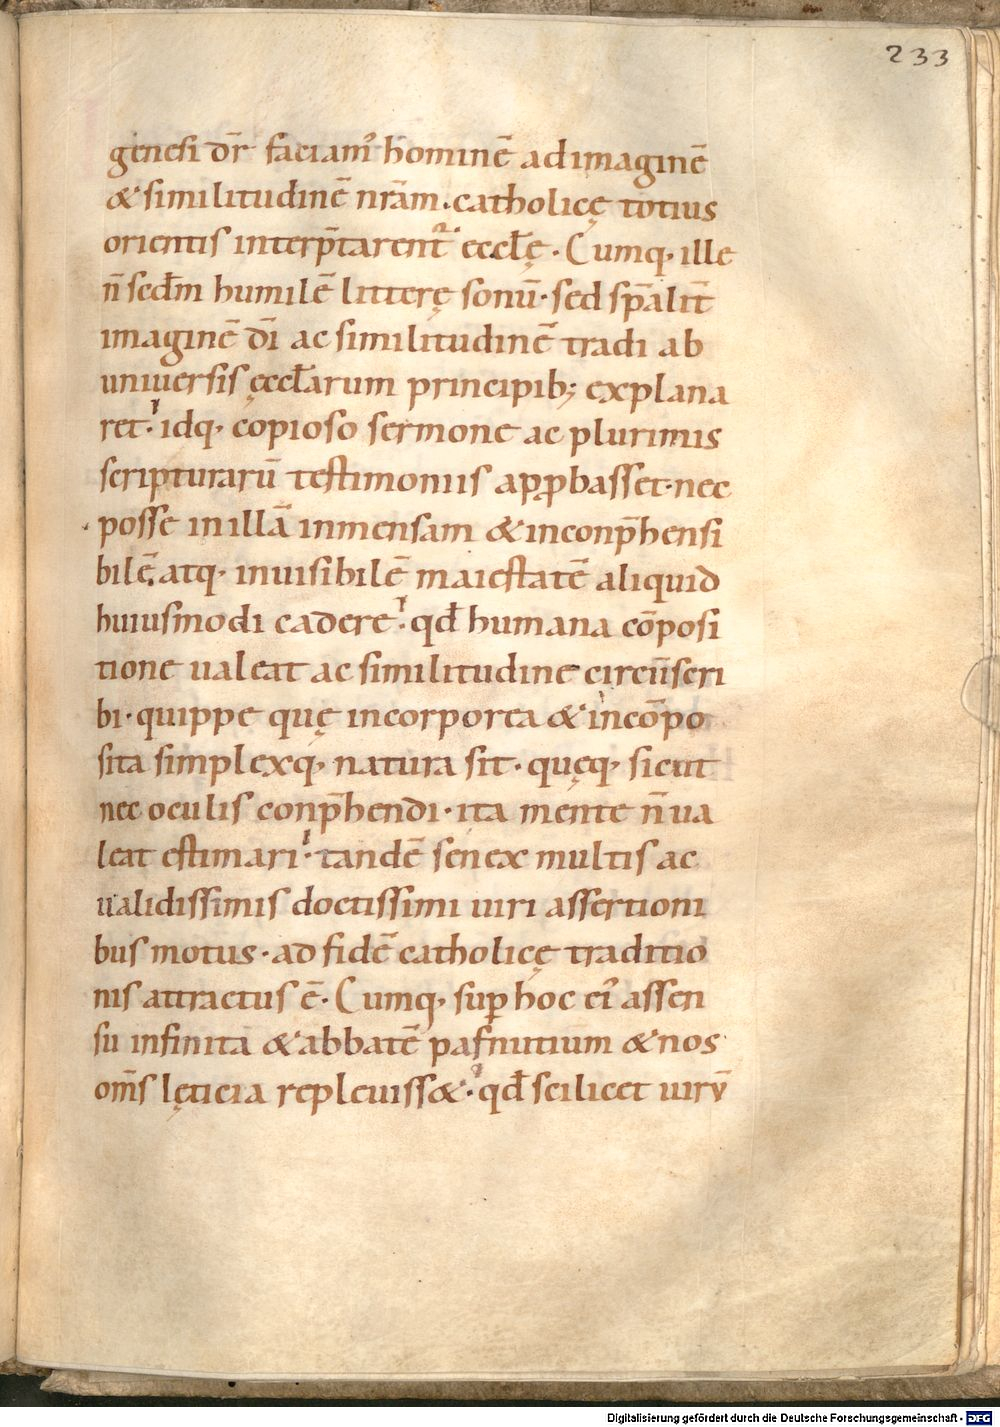 233
genesi dr̄ faciam᾽ hominē ad imaginē
& similitudinē nr̄am. catholicę totius
orientis interp̄tarent᾽ eccl̄ę. Cumq; ille
n̄ secd̄m humilē litterę sonū. sed sp̄alit̄
imaginē dī ac similitudinē tradi ab
uniuersis ęccl̄arum principib; explana
ret. idq; copioso sermone ac plurimis
scripturarū testimoniis apꝓbasset. nec
posse in illā inmensam & inconp̄hensi
bilē. atq; inuisibilē maiestatē aliquid
huiusmodi cadere. qđ humana cōposi
tione ualeat ac similitudine circūscri
bi. quippe quę incorporea & incōpo
sita simplexq; natura sit. quęq; sicut
nec oculis conp̄hendi. ita mente n̄ ua
leat estimari. tandē senex multis ac
ualidissimis doctissimi uiri assertioni
bus motus. ad fidē catholicę traditio
nis attractus ē. Cumq; suꝑ hoc ei᾽ assen
su infinita & abbatē pafnutium & nos
om̄s lęticia repleuiss&. qđ scilicet uirū
Digitalisierung gefördert durch die Deutsche Forschungsgemeinschaft - DFG